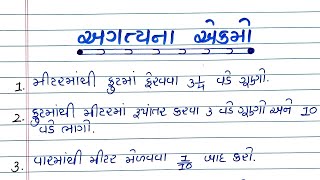 અગત્યના એકમો
1. મીટરમાંથી ફુટમાં ફેરવવા 3 1/4 વડે ગુણો.
2. ફુટમાંથી મીટરમાં રૂપાંતર કરવા 3 વડે ગુણો અને 10
વડે ભાગો.
3. વારમાંથી મીટર મેળવવા 1/10 બાદ કરો.